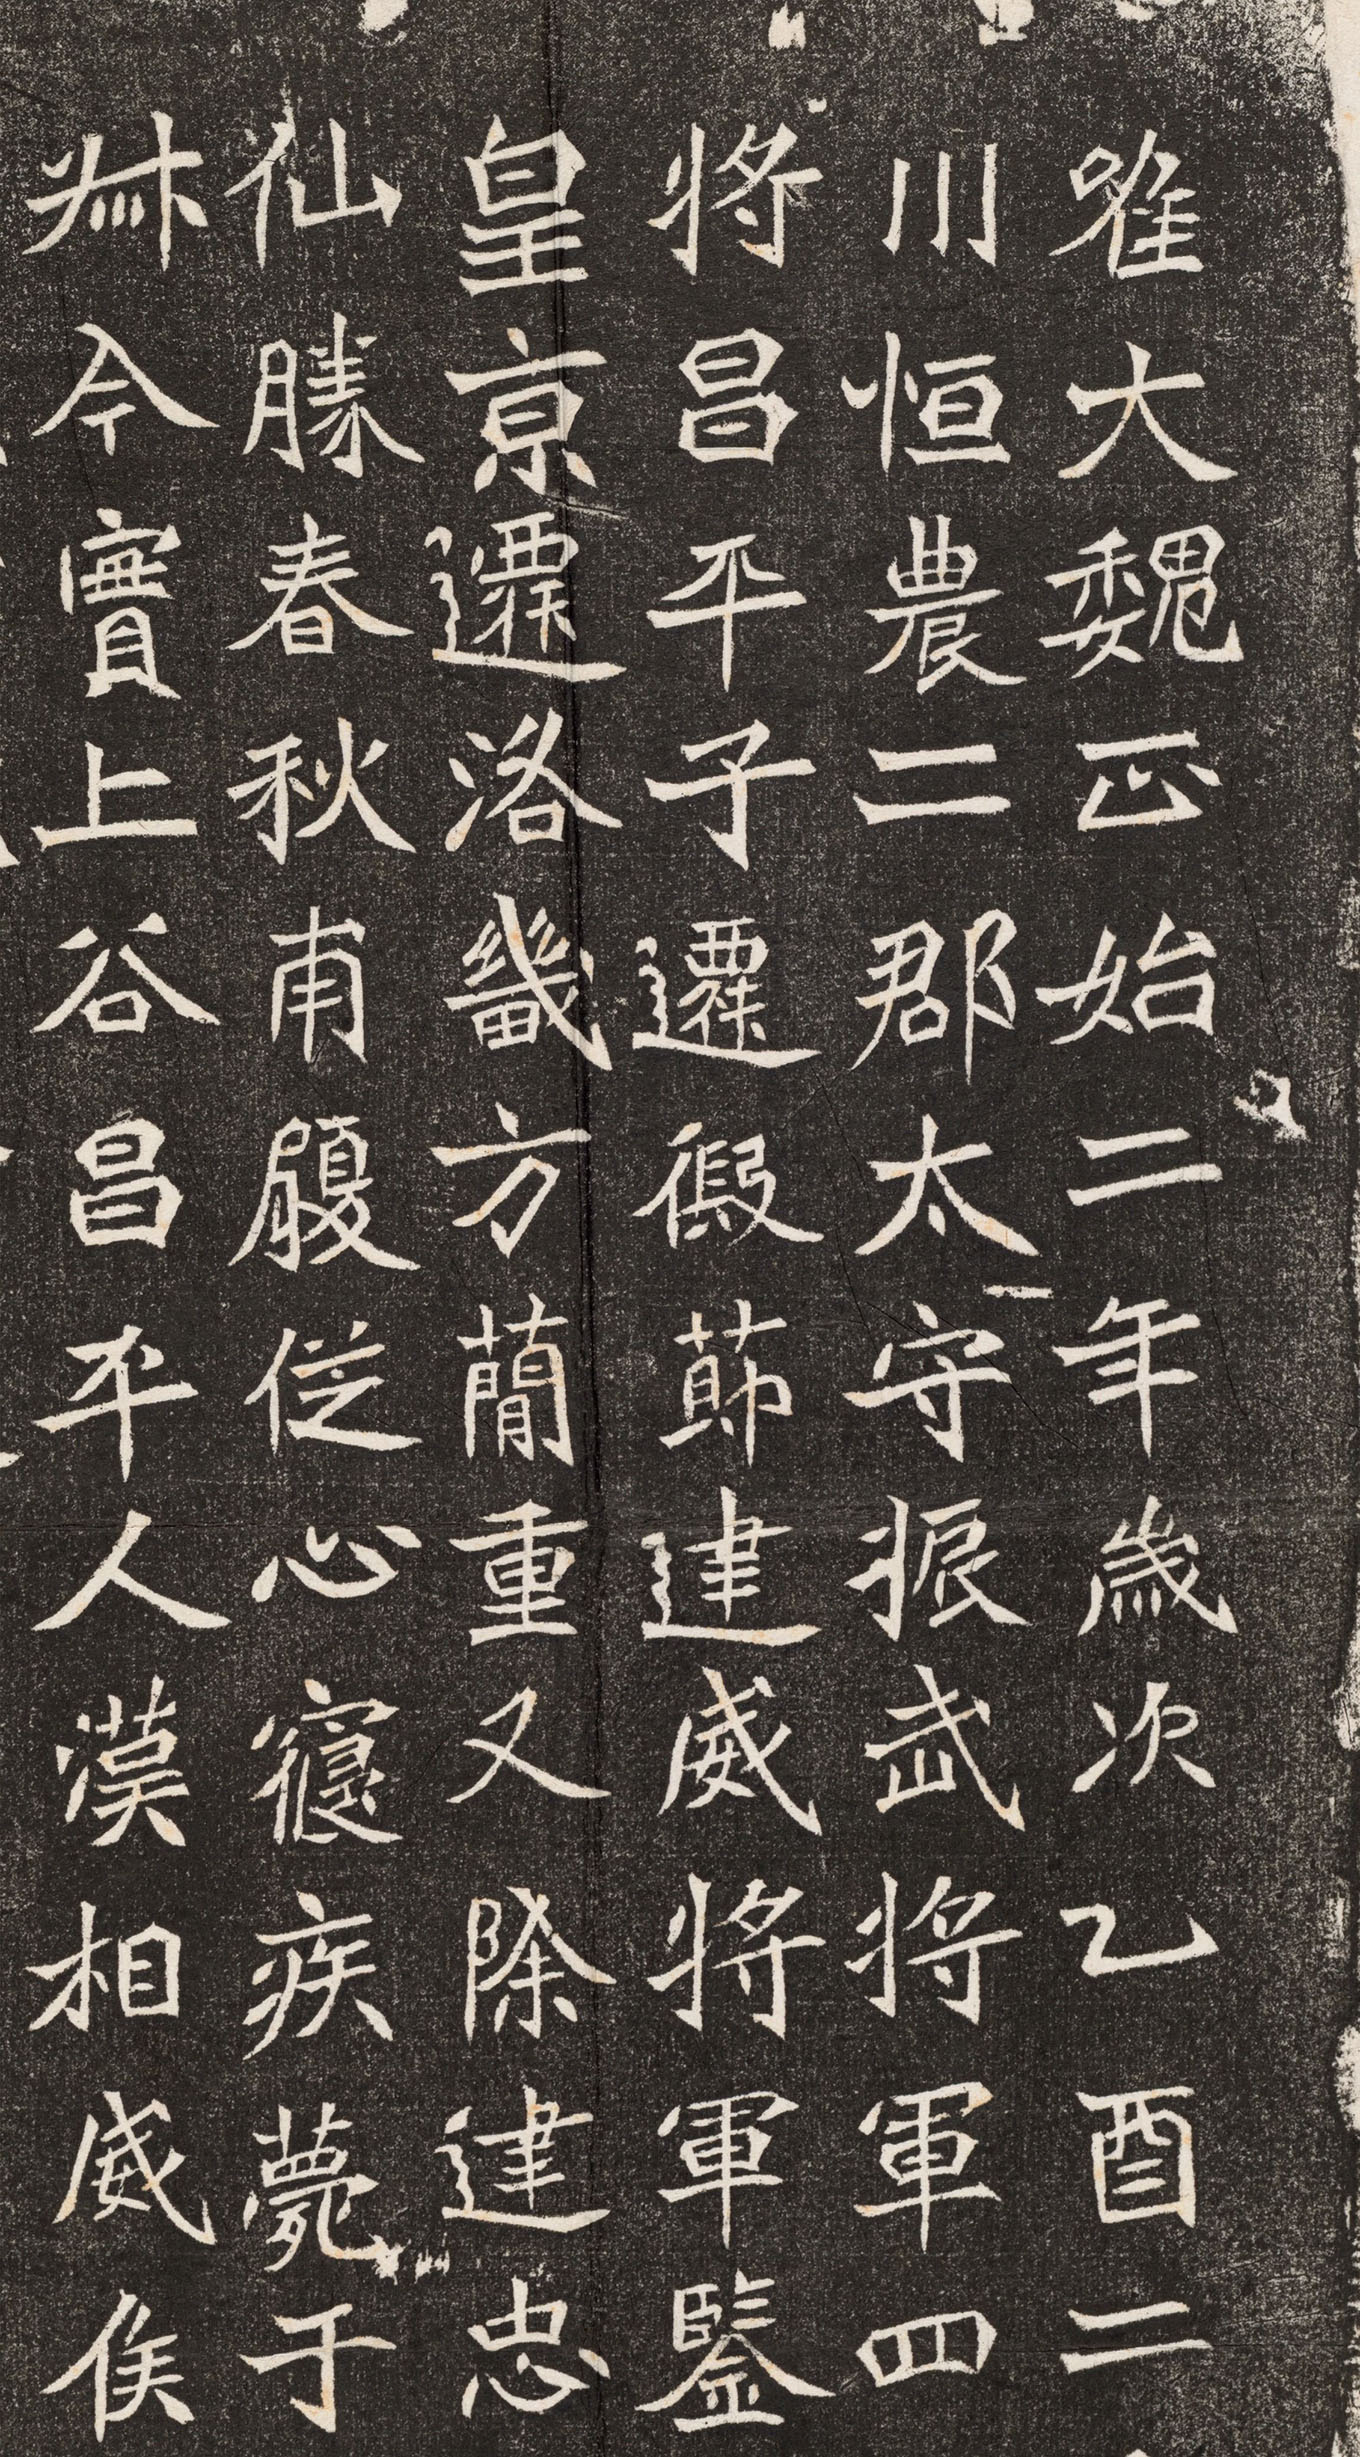 唯大魏正始二年歲次乙酉二
川恒農二郡太守振武將軍四
將昌平子遷假節建威將軍鑒
皇京遷洛畿方簡重又除建忠
仙勝春秋甫履從心寢疾薨于
今實上谷昌平人漢相威侯